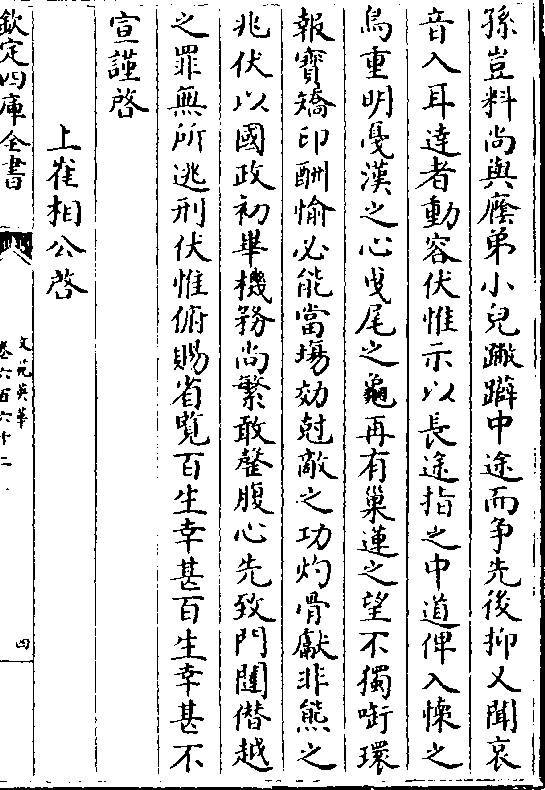 孫豈料尚與癈弟小兒蹴躃中途而争先後抑又聞哀
音入耳達者動容伏惟示以長途指之中道俾入懐之
鳥重明戞漢之心曵尾之龜再有巢蓮之望不獨㘅環
報寳矯印酬愉必能當塲効尅敵之功灼骨獻非熊之
兆伏以國政初畢機務尚繁敢罄腹心先致門闥僭越
之罪無所逃刑伏惟俯賜省覧百生幸甚百生幸甚不
宣謹啓
上崔相公啓
欽定四庫全書
文苑英華
卷六百六十二
四